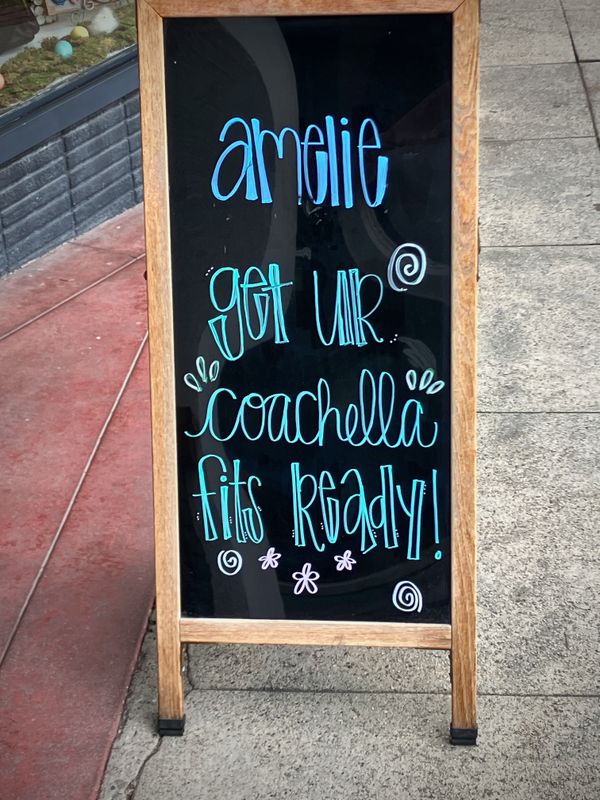 amelie
get UR
coachella
fits Ready!